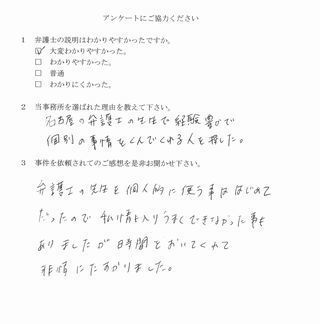 アンケートにご協力ください
1 弁護士の説明はわかりやすかったですか。
☑ 大変わかりやすかった。
☐ わかりやすかった。
☐ 普通
☐ わかりにくかった。
2 当事務所を選ばれた理由を教えて下さい。
名古屋の弁護士の先生で経験豊かで
個別の事情をくんでくれる人を探した。
3 事件を依頼されてのご感想を是非お聞かせ下さい。
弁護士の先生を個人的に使う事ははじめて
だったので 私情も入りうまくできなかった事も
ありましたが 時間をおいてくれて
非常にたすかりました。